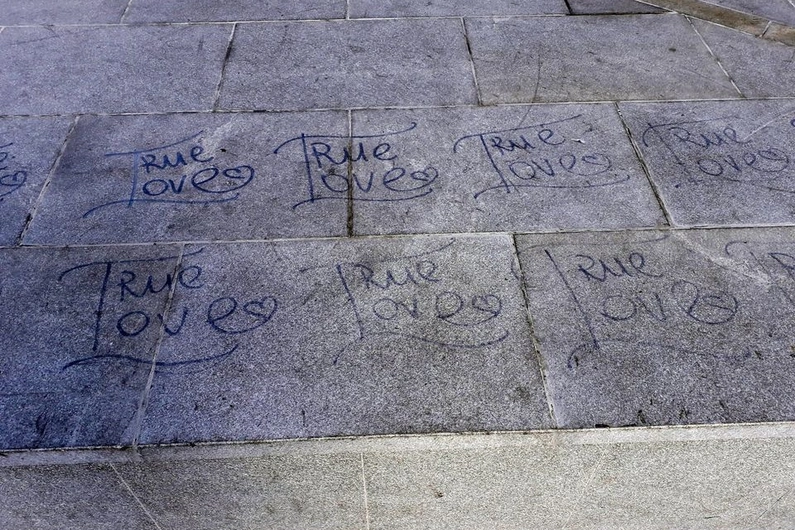 True True True True
Love Love Love Love
True True True
Love Love Love